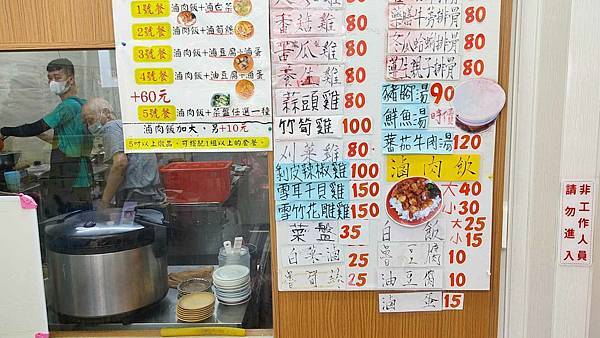 1號餐 滷肉飯+滷白菜
2號餐 滷肉飯+滷筍絲
3號餐 滷肉飯+滷豆腐+滷蛋
4號餐 滷肉飯+油豆腐+滷蛋
+60元
5號餐 滷肉飯+菜盤任選一樣
滷肉飯加大,另+10元
香菇雞 80
苦瓜雞 80
養生雞 80
蒜頭雞 80
竹筍雞 100
刈菜雞 80
剝皮辣椒雞 100
雪耳干貝雞 150
雪竹花雕雞 150
菜盤 35
白菜滷 25
魯筍絲 25
80
80
冬瓜蛤蜊排骨 80
80
豬腳湯 90
鮮魚湯 時價
蕃茄牛肉湯 120
滷肉飯
大 40
小 30
白飯 大 25
小 15
魯豆腐 10
油豆腐 10
滷蛋 15
非工作人員
請勿進入